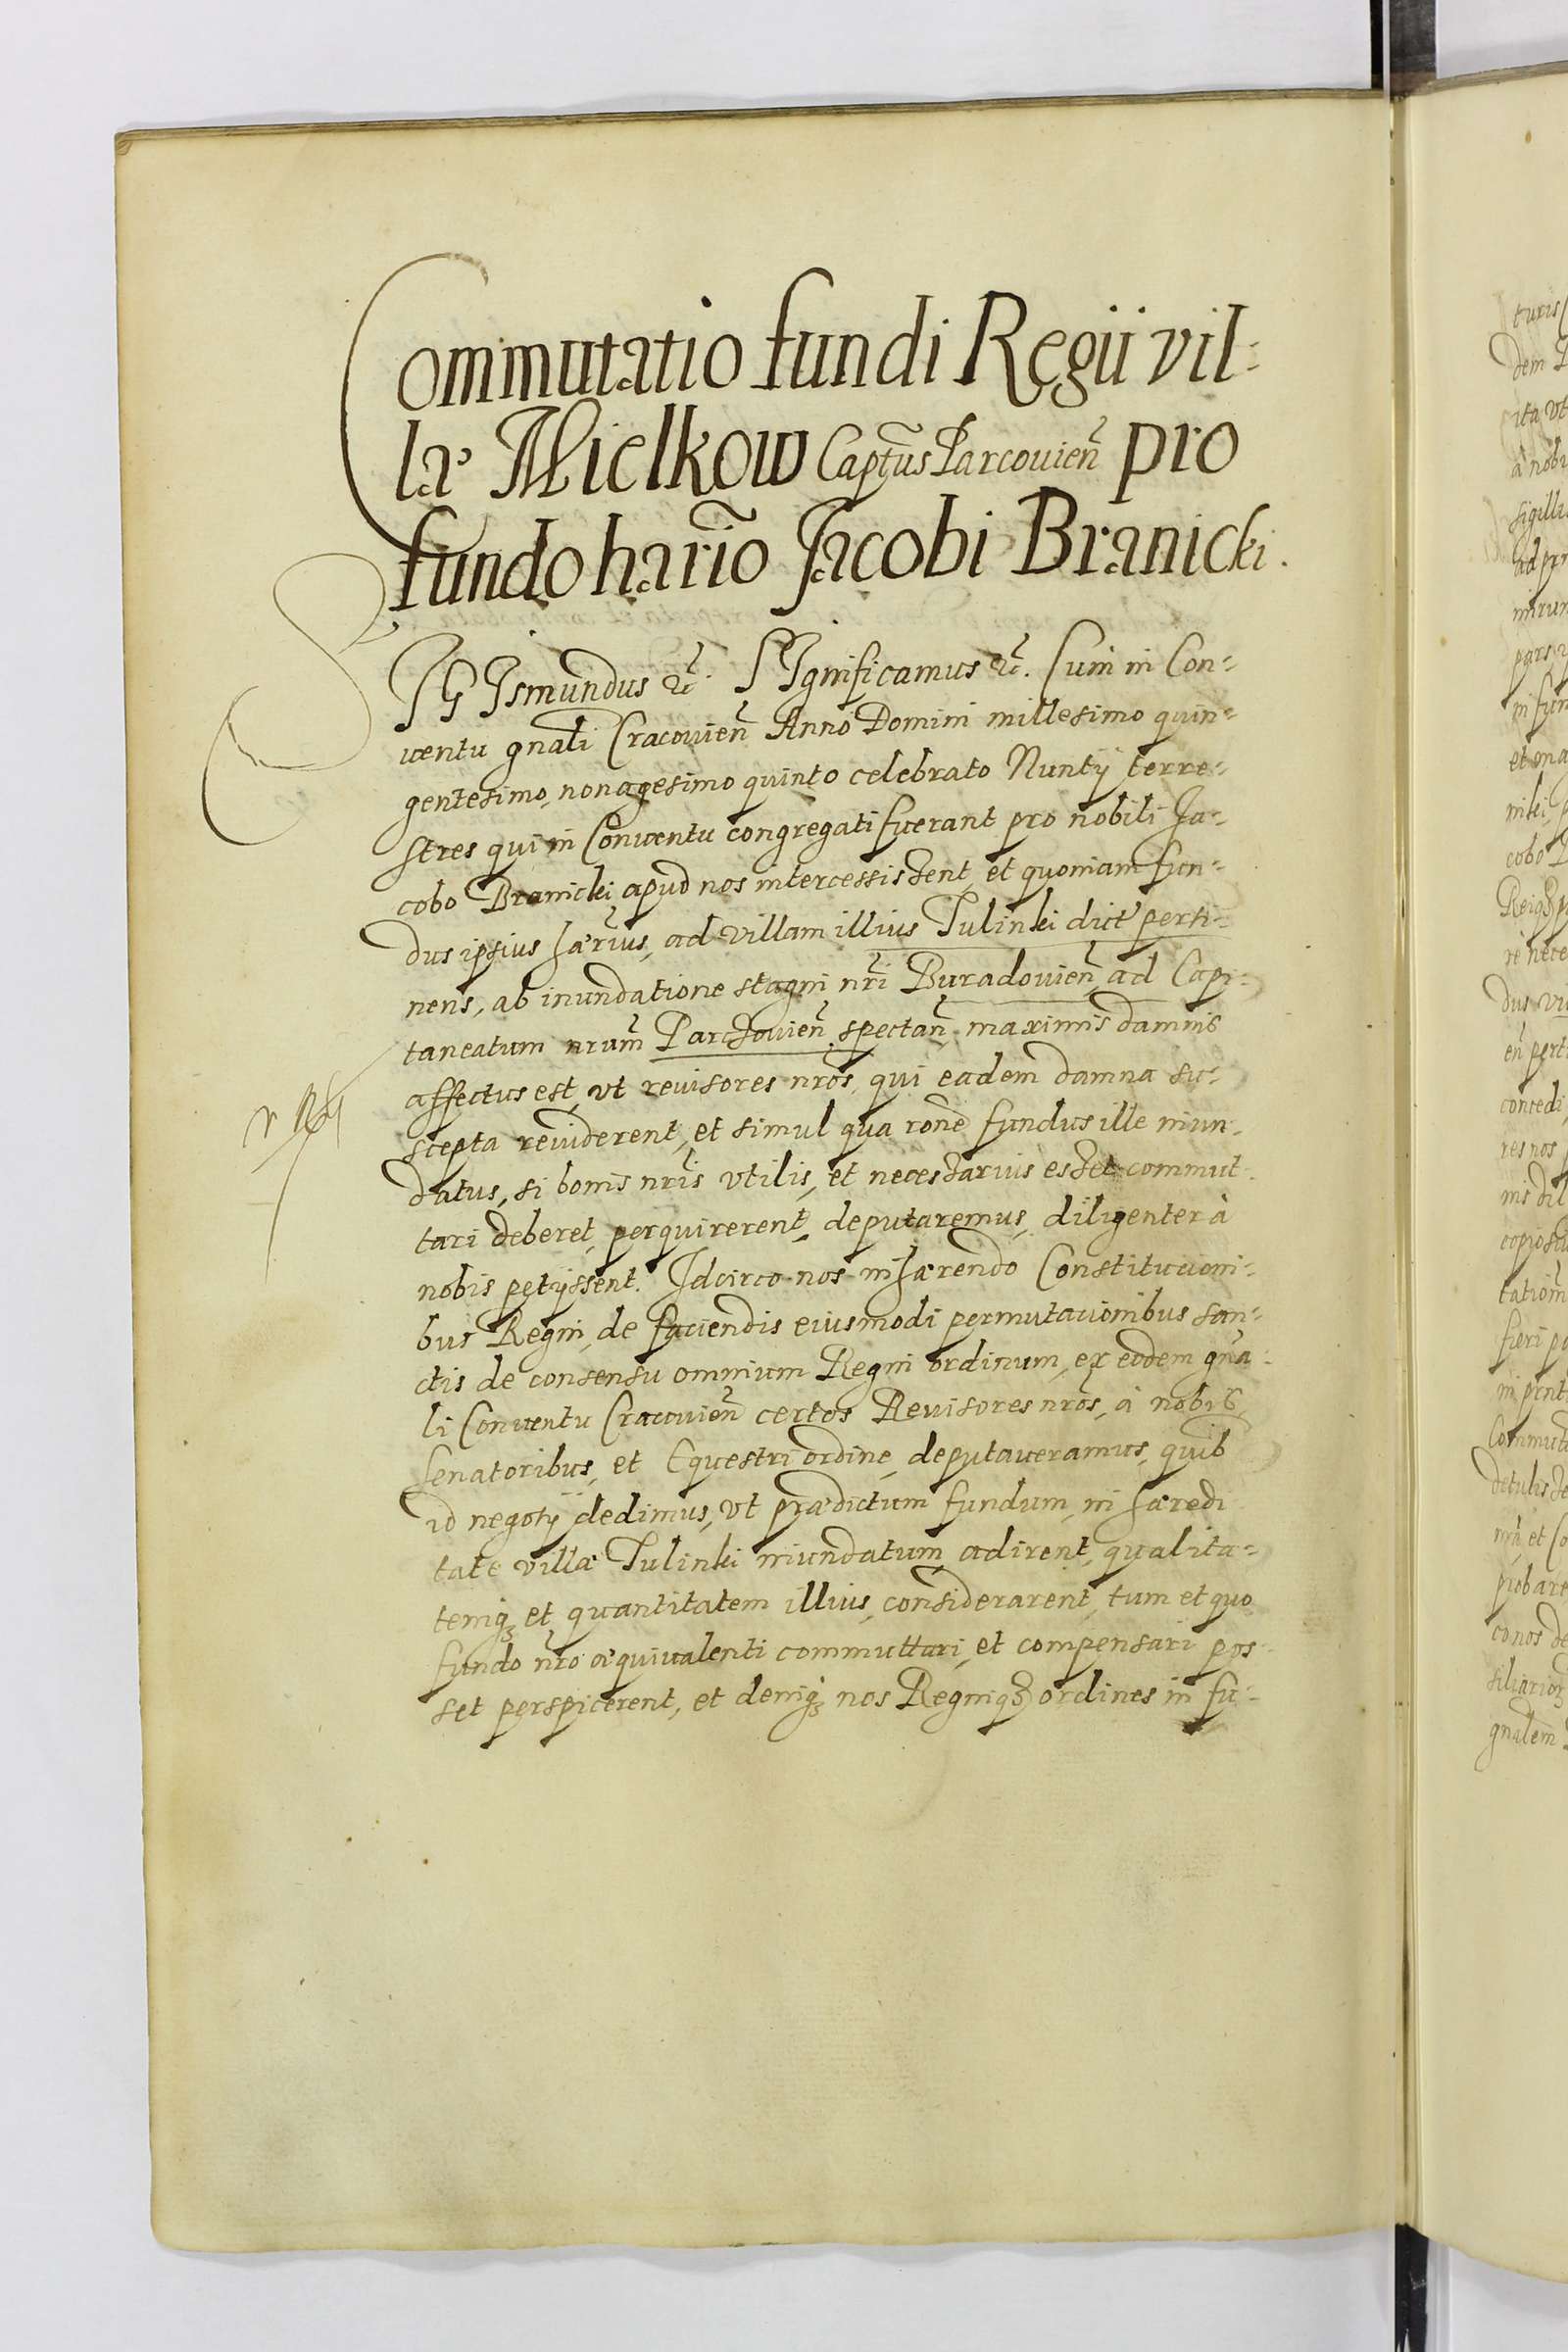 Commutatio fundi Regii vil=
læ Mielkow Captus Parcouien̄ pro
fundo hario Jacobi Branicki.
SIGIsmundus etc. SIgnificamus etc. Cum in Con=
uentu gnali Cracouien̄ Anno Domini millesimo quin=
gentesimo, nonagesimo quinto celebrato Nuntij terre=
stres qui in Conuentu congregati fuerant pro nobili Ja=
cobo Branicki apud nos intercessissent, et quoniam fun=
dus ipsius hærius, ad villam illius Tulinki dict' perti=
nens, ab inundatione stagni nri Buradouien̄, ad Capi=
taneatum nrum Parczouien̄ spectan̄, maximis damnis
affectus est, vt reuisores nros, qui eadem damna su=
scepta reuiderent, et simul qua rone fundus ille inun=
datus, si bonis nris vtilis, et necessarius esset commut=
tari deberet, perquirerent, deputaremus, diligenter à
nobis petijssent. Idcirco nos inhærendo Constitucioni=
bus Regni, de faciendis eiusmodi permutacionibus san=
ctis de consensu omnium Regni ordinum, ex eodem gna=
li Conuentu Cracouien̄ certos Reuisores nros, à nobis,
Senatoribus, et Equestri ordine, deputaueramus, quib
id negotij dedimus, vt prædictum fundum, in hæredi
tate villæ Tulinki inundatum adirent, qualita=
temqʒ et quantitatem illius, considerarent, tum et quo
fundo nro æquiualenti commuttari, et compensari pos=
set perspicerent, et deniqʒ nos Regniqʒ ordines in fu=